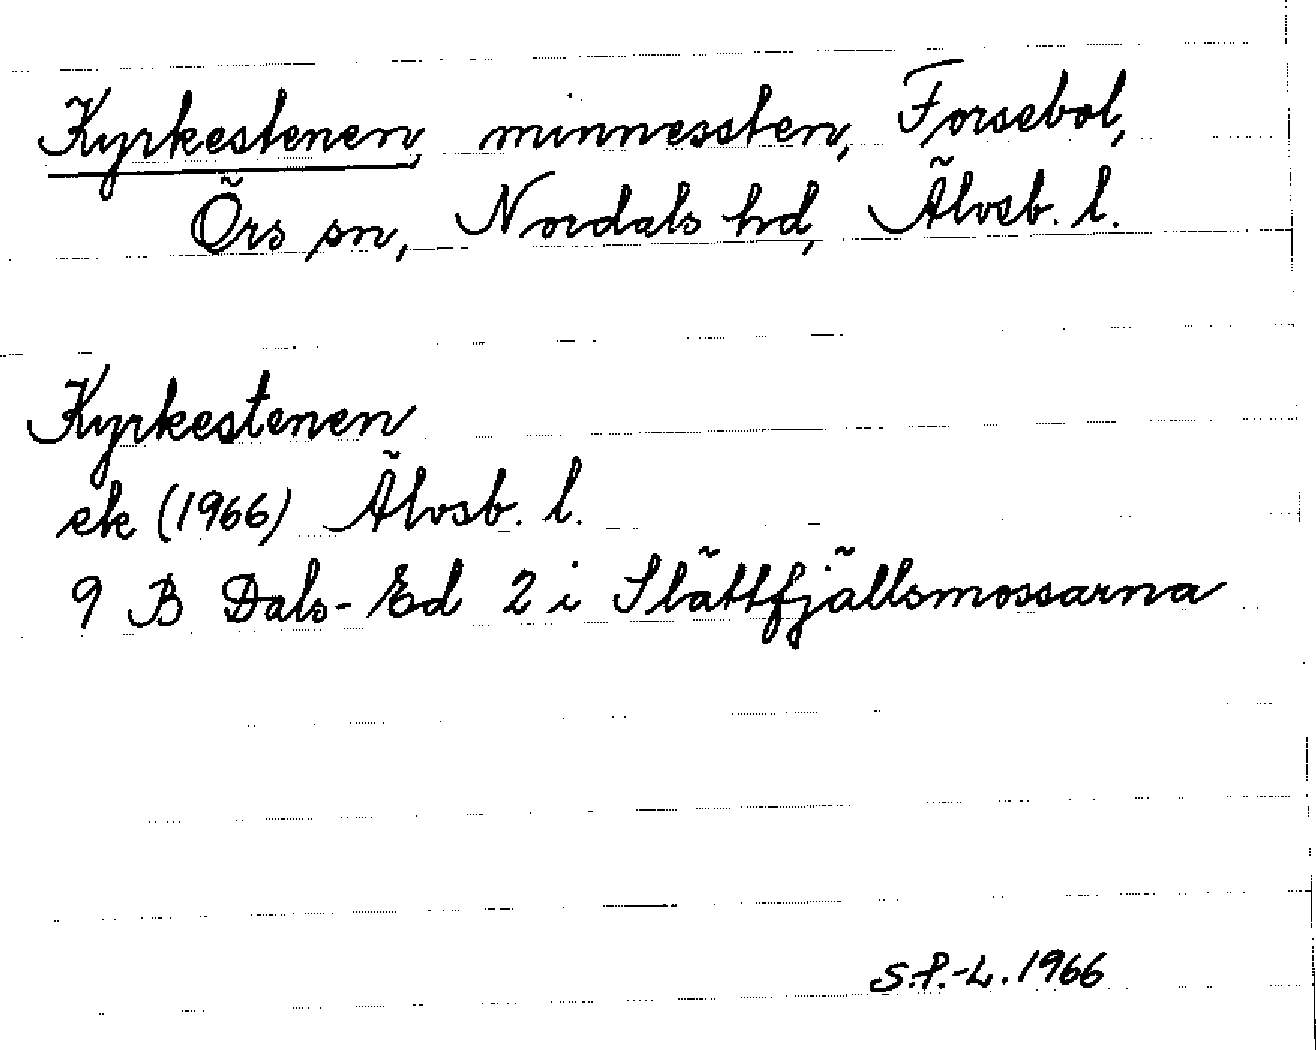 Kyrkestenen, minnessten, Forsebol,
Örs sn, Nordals hd, Älvsb. l.
Kyrkestenen
ek (1966) Älvsb. l.
9 B Dals-Ed 2 i Slättfjällsmossarna
S.P.-L. 1966